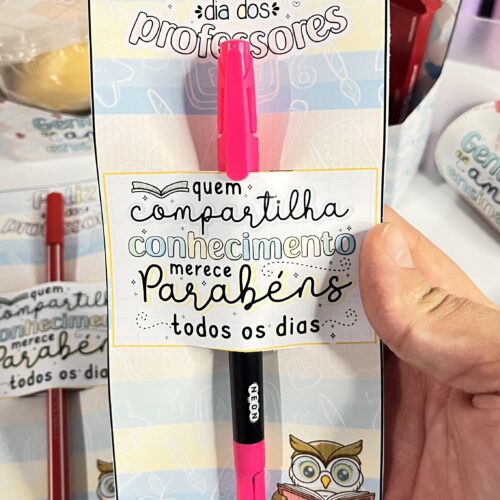 dia dos
professores
quem
compartilha
conhecimento
merece
Parabéns
todos os dias
NEON
Feliz
professores
quem
compartilha
conhecimento
merece
Parabéns
todos os dias